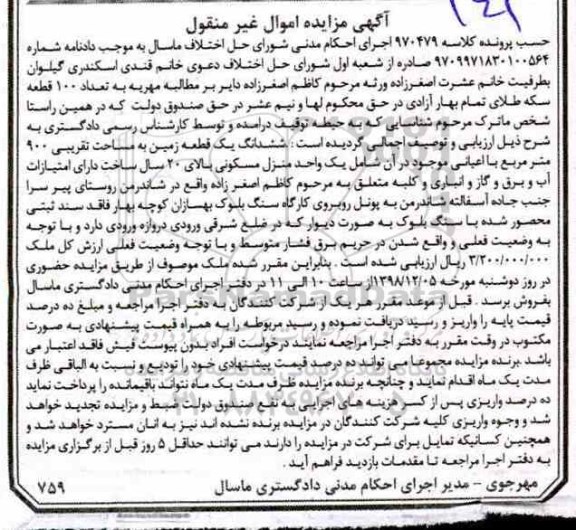 ۱۴۱
آگهی مزایده اموال غیر منقول
حسب پرونده کلاسه ۹۷۰۴۷۹ اجرای احکام مدنی شورای حل اختلاف ماسال به موجب دادنامه شماره
۹۷۰۹۹۷۱۸۳۰۱۰۰۵۶۴ صادره از شعبه اول شورای حل اختلاف دعوی خانم قندی اسکندری گیلوان
بطرفیت خانم عشرت اصغرزاده ورثه مرحوم کاظم اصغرزاده دایر بر مطالبه مهریه به تعداد ۱۰۰ قطعه
سکه طلای تمام بهار آزادی در حق محکوم لها و نیم عشر در حق صندوق دولت که در همین راستا
شخص ماترک مرحوم شناسایی که به حیطه توقیف درامده و توسط کارشناس رسمی دادگستری به
شرح ذیل ارزیابی و توصیف اجمالی گردیده است : ششدانگ یک قطعه زمین به مساحت تقریبی ۹۰۰
متر مربع با اعیانی موجود در آن شامل یک واحد منزل مسکونی بالای ۲۰ سال ساخت دارای امتیازات
آب و برق و گاز و انباری و کلبه متعلق به مرحوم کاظم اصغر زاده واقع در شاندرمن روستای پیر سرا
جنب جاده آسفالته شاندرمن به پونل روبروی کارگاه سنگ بلوک بهسازان کوچه بهار فاقد سند ثبتی
محصور شده با سنگ بلوک به صورت دیوار که در ضلع شرقی ورودی دروازه ورودی دارد و با توجه
به وضعیت فعلی و واقع شدن در حریم برق فشار متوسط و با توجه وضعیت فعلی ارزش کل ملک
۳/۲۰۰/۰۰۰/۰۰۰ ریال ارزیابی شده است . بنابراین مقرر شده ملک موصوف از طریق مزایده حضوری
در روز دوشنبه مورخه ۱۳۹۸/۱۲/۰۵از ساعت ۱۰ الی ۱۱ در دفتر اجرای احکام مدنی دادگستری ماسال
بفروش برسد . قبل از موعد مقرر هر یک از شرکت کنندگان به دفتر اجرا مراجعه و مبلغ ده درصد
قیمت پایه را واریز و رسید دریافت نموده و رسید مربوطه را به همراه قیمت پیشنهادی به صورت
مکتوب در وقت مقرر به دفتر اجرا مراجعه نمایند درخواست افراد بدون پیوست فیش فاقد اعتبار می
باشد. برنده مزایده مجموعا می تواند ده درصد قیمت پیشنهادی خود را تودیع و نسبت به الباقی ظرف
مدت یک ماه اقدام نماید و چنانچه برنده مزایده ظرف مدت یک ماه نتواند باقیمانده را پرداخت نماید
ده درصد واریزی پس از کسر هزینه های اجرایی به نفع صندوق دولت ضبط و مزایده تجدید خواهد
شد و وجوه واریزی کلیه شرکت کنندگان در مزایده برنده نشده اند نیز به انان مسترد خواهد شد و
همچنین کسانیکه تمایل برای شرکت در مزایده را دارند می توانند حداقل ۵ روز قبل از برگزاری مزایده
به دفتر اجرا مراجعه تا مقدمات بازدید فراهم آید .
مهرجوی – مدیر اجرای احکام مدنی دادگستری ماسال ۷۵۹